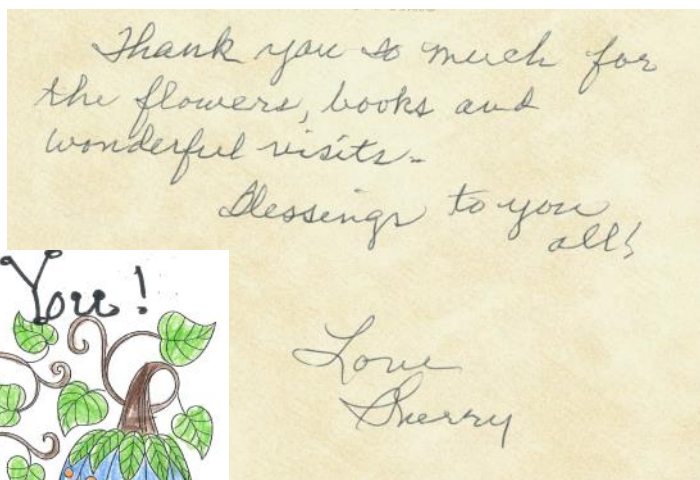 Thank you so much for
the flowers, books and
wonderful visits.
Blessings to you
all!
You!
Love
Sherry